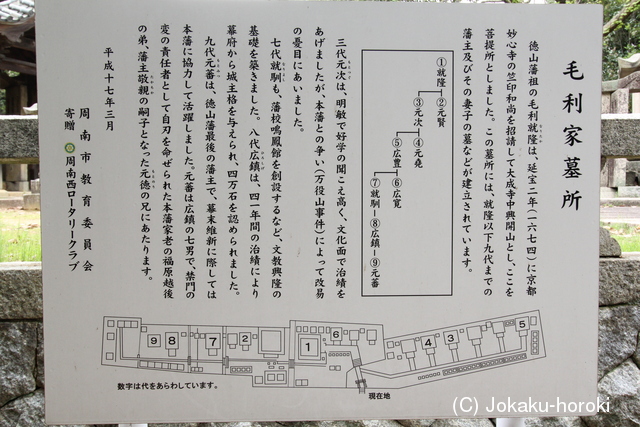 毛利家墓所
徳山藩祖の毛利就隆は、延宝二年(一六七四)に京都
妙心寺の竺印和尚を招請して大成寺中興開山とし、ここを
菩提所としました。この墓所には、就隆以下九代までの
藩主及びその妻子の墓などが建立されています。
①就隆
②元賢
③元次
④元堯
⑤広豊
⑥広寛
⑦就馴─⑧広鎮─⑨元蕃
三代元次は、明敏で好学の聞こえ高く、文化面で治績を
あげましたが、本藩との争い(万役山事件)によって改易
の憂目にあいました。
七代就馴も、藩校鳴鳳館を創設するなど、文教興隆の
基礎を築きました。八代広鎮は、四一年間の治績により
幕府から城主格を与えられ、四万石を認められました。
九代元蕃は、徳山藩最後の藩主で、幕末維新に際しては
本藩に協力して活躍しました。元蕃は広鎮の七男で、禁門の
変の責任者として自刃を命ぜられた本藩家老の福原越後
の弟、藩主敬親の嗣子となった元徳の兄にあたります。
平成十七年三月
周南市教育委員会
寄贈 周南西ロータリークラブ
9 8 7 2 1 6 4 3 5
数字は代をあらわしています。
現在地
(C) Jokaku-horoki